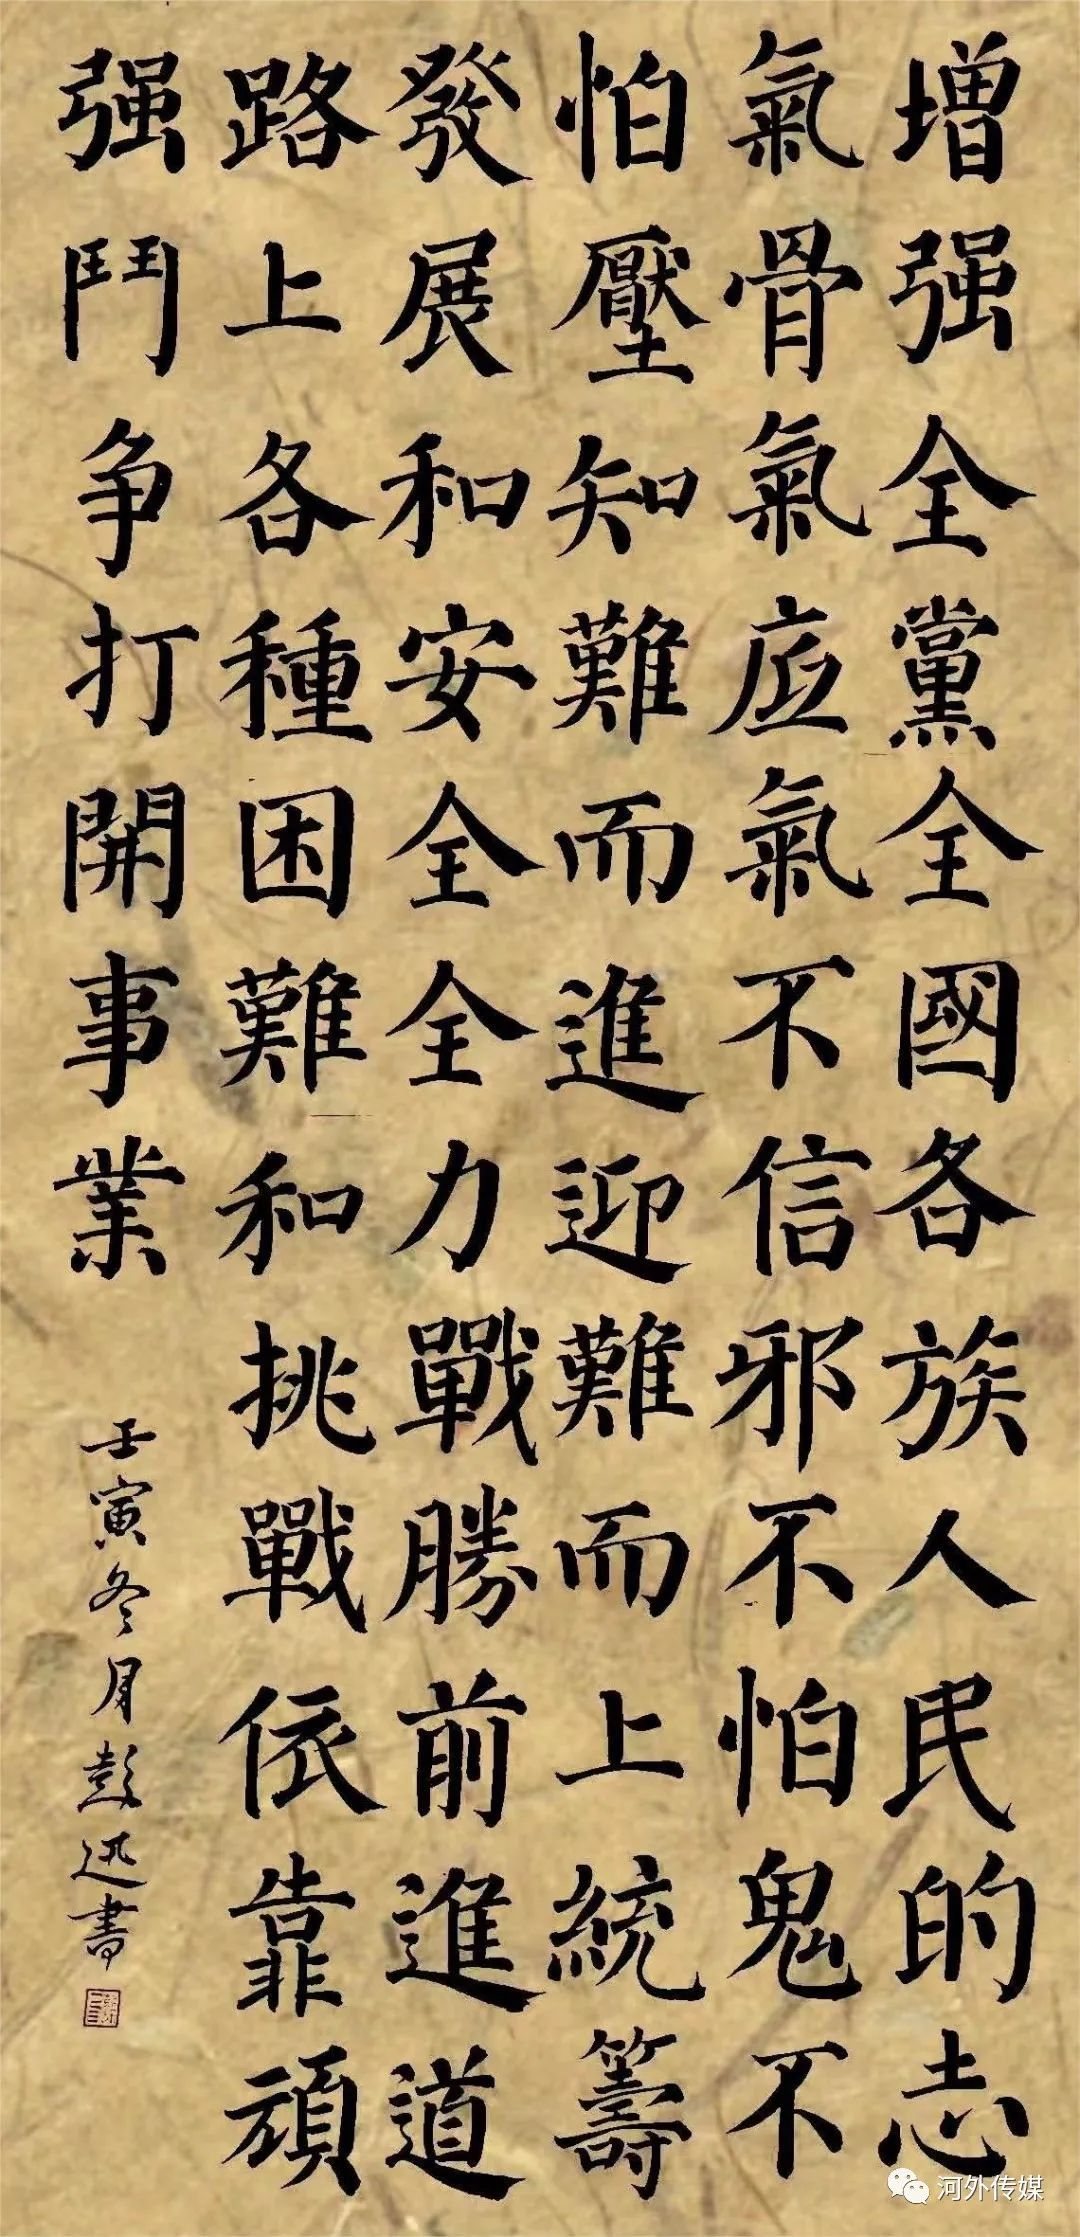 增强全黨全國各族人民的志
氣骨氣底氣不信邪不怕鬼不
怕壓知難而進迎難而上統籌
發展和安全全力戰勝前進道
路上各種困難和挑戰依靠頑
强鬥争打開事業
壬寅冬月彭迅書
河外传媒